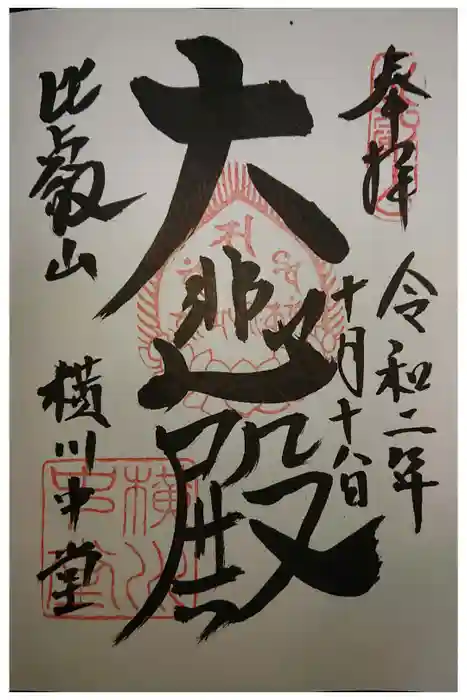 奉拝
令和二年
十月十八日
大悲殿
比叡山
横川中堂
横川
中堂